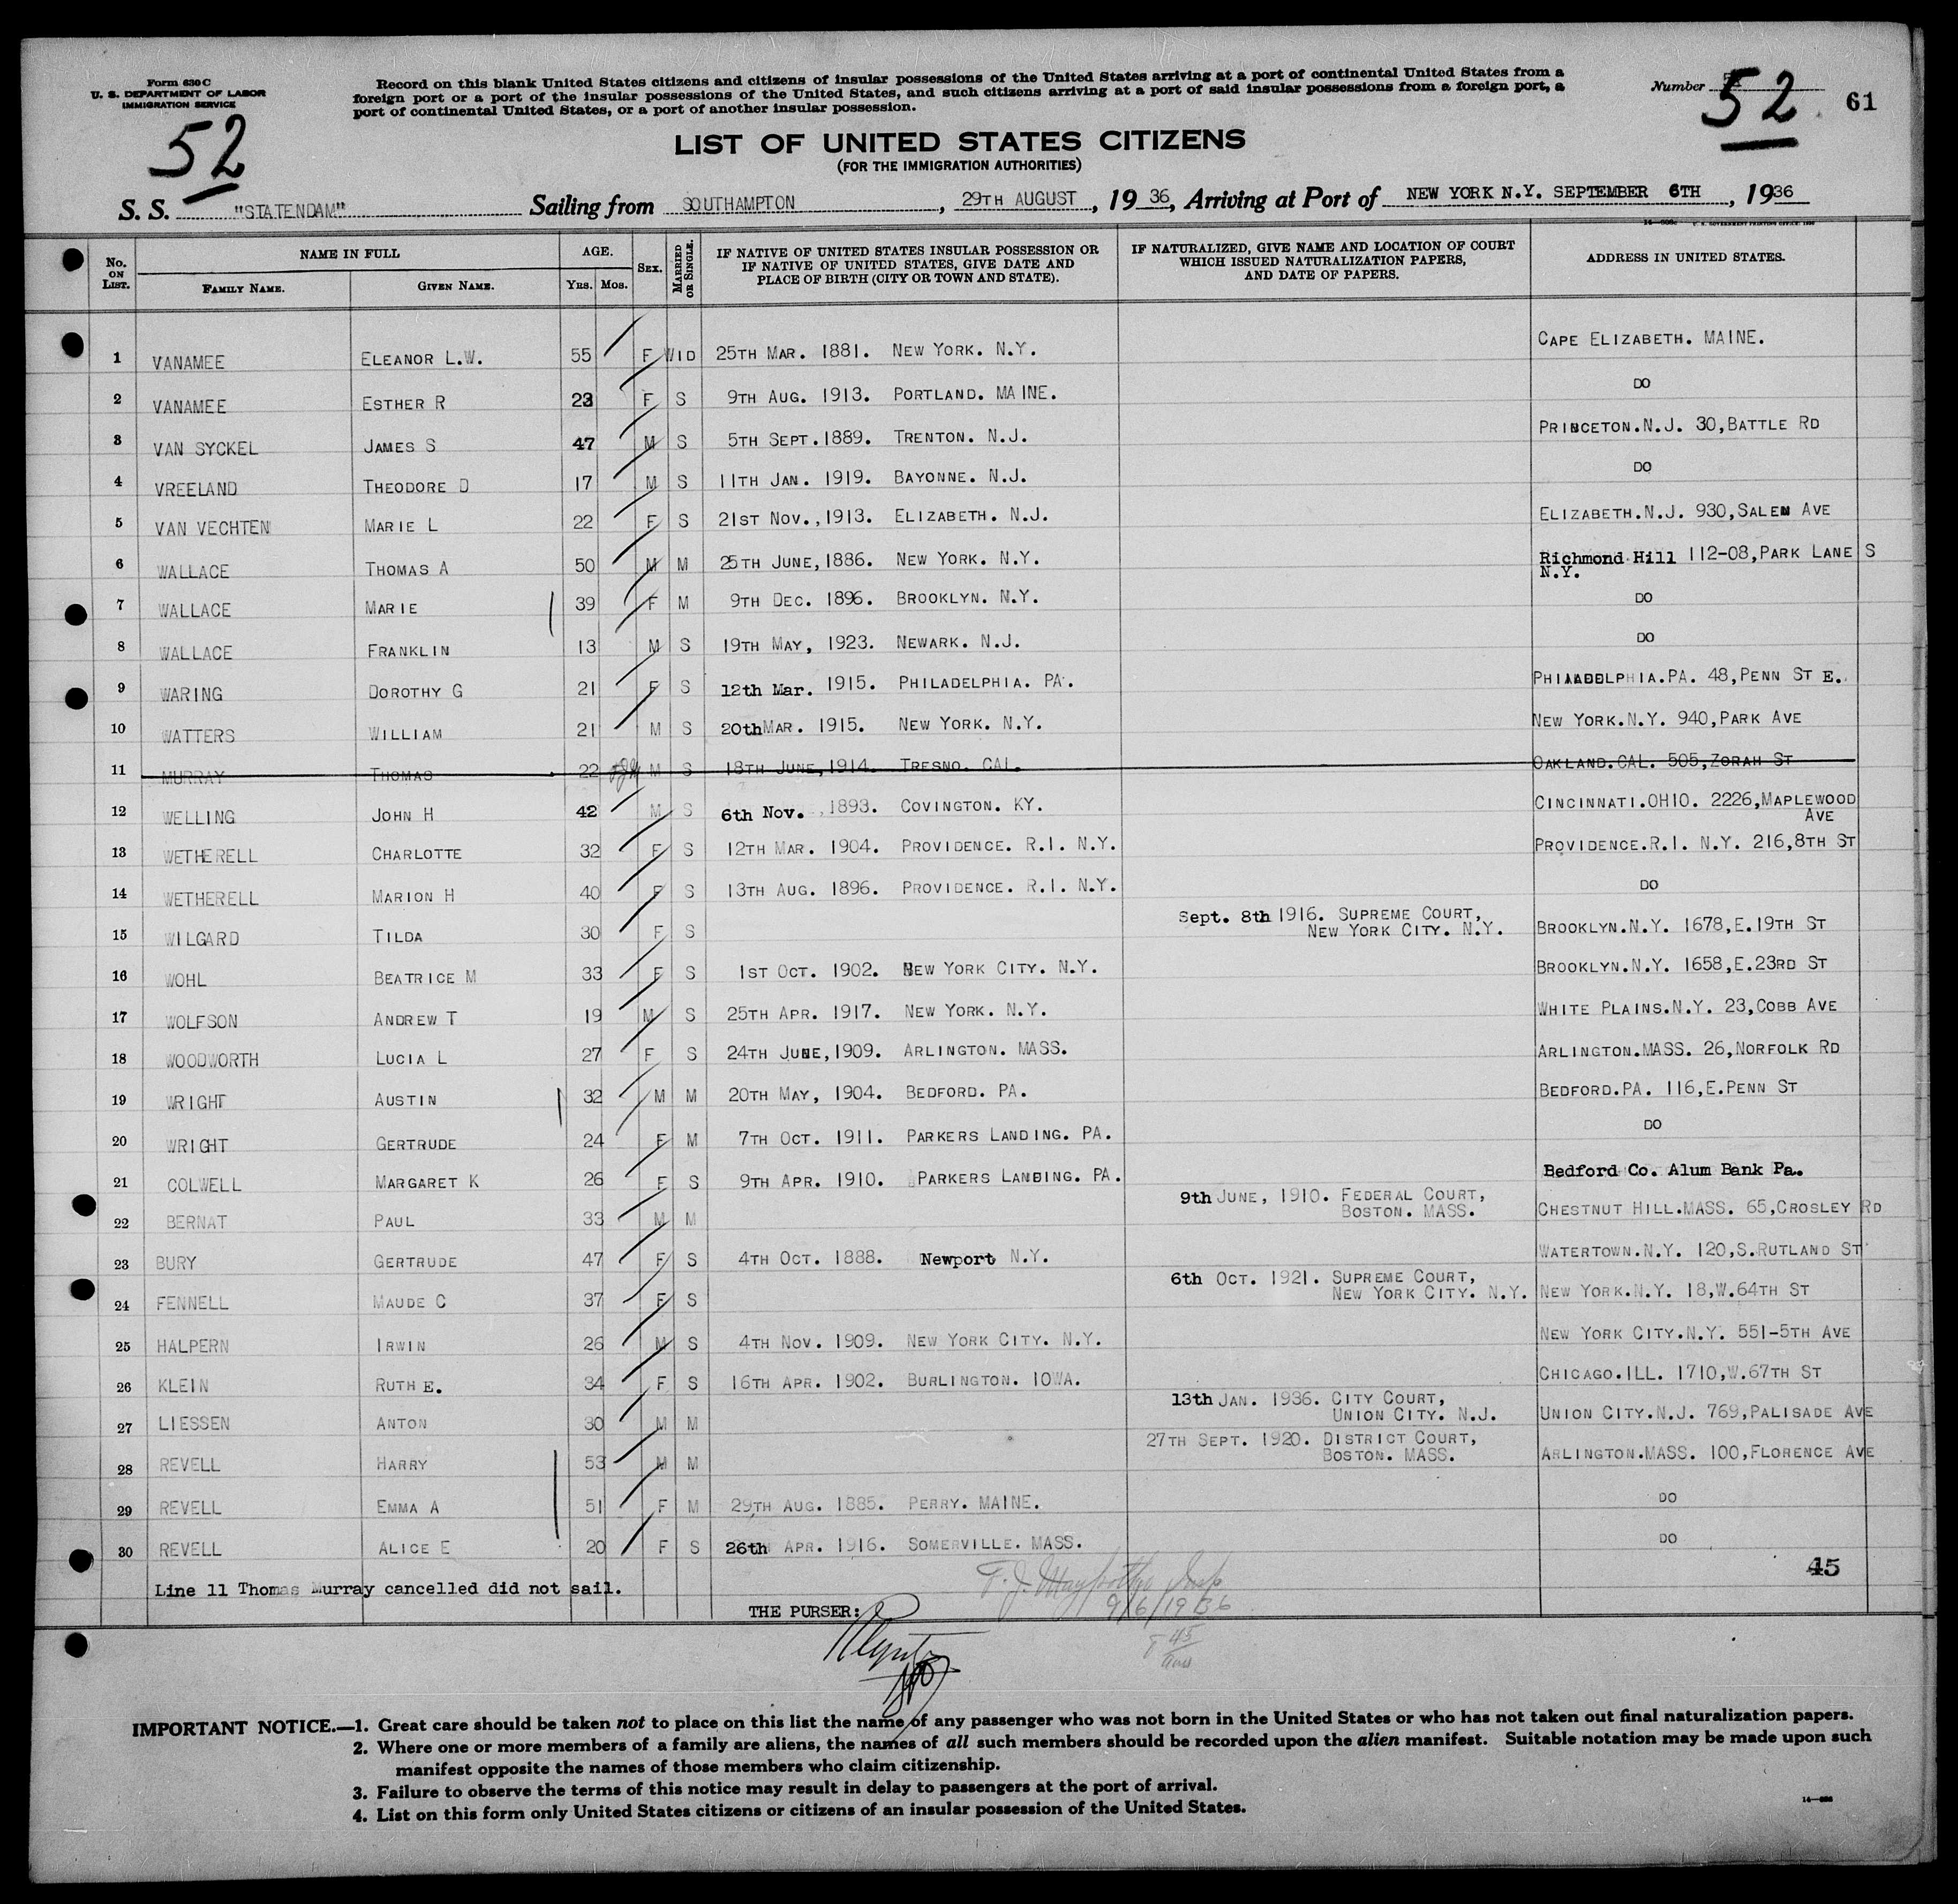 Form 630 C
U. S. DEPARTMENT OF LABOR
IMMIGRATION SERVICE
52
Record on this blank United States citizens and citizens of insular possessions of the United States arriving at a port of continental United States from a
foreign port or a port of the insular possessions of the United States, and such citizens arriving at a port of said insular possessions from a foreign port, a
port of continental United States, or a port of another insular possession.
Number 52
61
LIST OF UNITED STATES CITIZENS
(FOR THE IMMIGRATION AUTHORITIES)
S. S. "STATENDAM" Sailing from SOUTHAMPTON, 29TH AUGUST, 19 36, Arriving at Port of NEW YORK N.Y. SEPTEMBER 6TH, 1936
No. ON LIST. NAME IN FULL FAMILY NAME. GIVEN NAME. AGE. YRS. MOS. SEX. MARRIED OR SINGLE. IF NATIVE OF UNITED STATES INSULAR POSSESSION OR IF NATIVE OF UNITED STATES, GIVE DATE AND PLACE OF BIRTH (CITY OR TOWN AND STATE). IF NATURALIZED, GIVE NAME AND LOCATION OF COURT WHICH ISSUED NATURALIZATION PAPERS, AND DATE OF PAPERS. ADDRESS IN UNITED STATES.
1 VANAMEE ELEANOR L.W. 55 F WID 25TH MAR. 1881. NEW YORK. N.Y. CAPE ELIZABETH. MAINE.
2 VANAMEE ESTHER R 23 F S 9TH AUG. 1913. PORTLAND. MAINE. DO
3 VAN SYCKEL JAMES S 47 M S 5TH SEPT.1889. TRENTON. N.J. PRINCETON.N.J. 30,BATTLE RD
4 VREELAND THEODORE D 17 M S 11TH JAN. 1919. BAYONNE. N.J. DO
5 VAN VECHTEN MARIE L 22 F S 21ST NOV.,1913. ELIZABETH. N.J. ELIZABETH.N.J. 930,SALEM AVE
6 WALLACE THOMAS A 50 M M 25TH JUNE,1886. NEW YORK. N.Y. Richmond Hill 112-08,PARK LANE S
N.Y.
7 WALLACE MARIE 39 F M 9TH DEC. 1896. BROOKLYN. N.Y. DO
8 WALLACE FRANKLIN 13 M S 19TH MAY, 1923. NEWARK. N.J. DO
9 WARING DOROTHY G 21 F S 12th Mar. 1915. PHILADELPHIA. PA. PHILADELPHIA.PA. 48,PENN ST E.
10 WATTERS WILLIAM 21 M S 20th MAR. 1915. NEW YORK. N.Y. NEW YORK.N.Y. 940,PARK AVE
11 MURRAY THOMAS 22 M S 18TH JUNE,1914. TRESNO. CAL. OAKLAND.CAL. 505,ZORAH ST
12 WELLING JOHN H 42 M S 6th Nov. ,1893. COVINGTON. KY. CINCINNATI.OHIO. 2226,MAPLEWOOD
AVE
13 WETHERELL CHARLOTTE 32 F S 12TH MAR. 1904. PROVIDENCE. R.I. N.Y. PROVIDENCE.R.I. N.Y. 216,8TH ST
14 WETHERELL MARION H 40 F S 13TH AUG. 1896. PROVIDENCE. R.I. N.Y. DO
15 WILGARD TILDA 30 F S Sept. 8th 1916. SUPREME COURT,
NEW YORK CITY. N.Y. BROOKLYN.N.Y. 1678,E.19TH ST
16 WOHL BEATRICE M 33 F S 1ST OCT. 1902. NEW YORK CITY. N.Y. BROOKLYN.N.Y. 1658,E.23RD ST
17 WOLFSON ANDREW T 19 M S 25TH APR. 1917. NEW YORK. N.Y. WHITE PLAINS.N.Y. 23,COBB AVE
18 WOODWORTH LUCIA L 27 F S 24TH JUNE,1909. ARLINGTON. MASS. ARLINGTON.MASS. 26,NORFOLK RD
19 WRIGHT AUSTIN 32 M M 20TH MAY, 1904. BEDFORD. PA. BEDFORD.PA. 116,E.PENN ST
20 WRIGHT GERTRUDE 24 F M 7TH OCT. 1911. PARKERS LANDING. PA. DO
21 COLWELL MARGARET K 26 F S 9TH APR. 1910. PARKERS LANDING. PA. Bedford Co. Alum Bank Pa.
22 BERNAT PAUL 33 M M 9th JUNE, 1910. FEDERAL COURT,
BOSTON. MASS. CHESTNUT HILL.MASS. 65,CROSLEY RD
23 BURY GERTRUDE 47 F S 4TH OCT. 1888. Newport N.Y. WATERTOWN.N.Y. 120,S.RUTLAND ST
24 FENNELL MAUDE C 37 F S 6th OCT. 1921. SUPREME COURT,
NEW YORK CITY. N.Y. NEW YORK.N.Y. 18,W.64TH ST
25 HALPERN IRWIN 26 M S 4TH NOV. 1909. NEW YORK CITY. N.Y. NEW YORK CITY.N.Y. 551-5TH AVE
26 KLEIN RUTH E. 34 F S 16TH APR. 1902. BURLINGTON. IOWA. CHICAGO.ILL. 1710,W.67TH ST
27 LIESSEN ANTON 30 M M 13th JAN. 1936. CITY COURT,
UNION CITY. N.J. UNION CITY.N.J. 769,PALISADE AVE
28 REVELL HARRY 53 M M 27TH SEPT. 1920. DISTRICT COURT,
BOSTON. MASS. ARLINGTON.MASS. 100,FLORENCE AVE
29 REVELL EMMA A 51 F M 29TH AUG. 1885. PERRY. MAINE. DO
30 REVELL ALICE E 20 F S 26th APR. 1916. SOMERVILLE. MASS. DO
45
Line 11 Thomas Murray cancelled did not sail.
THE PURSER:
9/6/1936
45
IMPORTANT NOTICE.—1. Great care should be taken not to place on this list the name of any passenger who was not born in the United States or who has not taken out final naturalization papers.
2. Where one or more members of a family are aliens, the names of all such members should be recorded upon the alien manifest. Suitable notation may be made upon such
manifest opposite the names of those members who claim citizenship.
3. Failure to observe the terms of this notice may result in delay to passengers at the port of arrival.
4. List on this form only United States citizens or citizens of an insular possession of the United States.